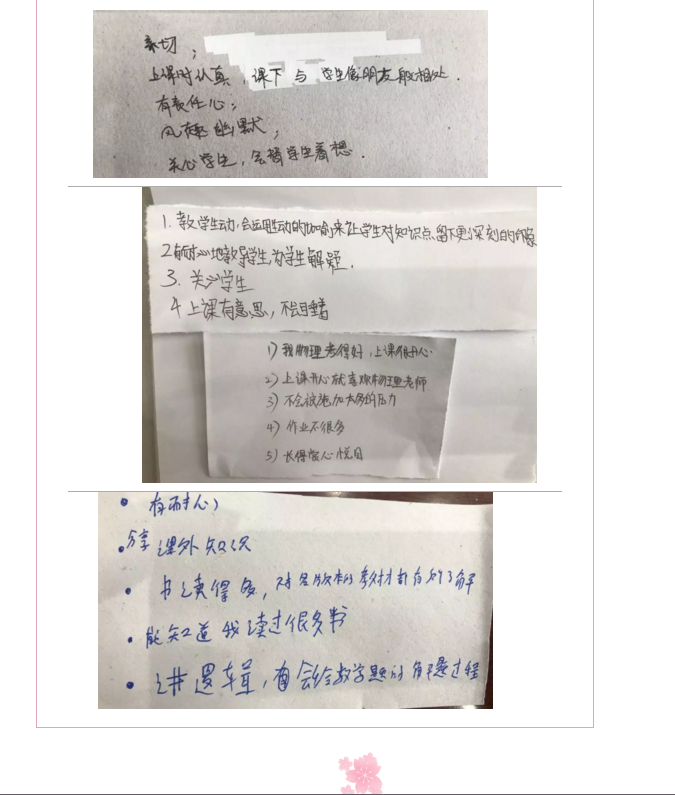 亲切；
上课时认真，课下与学生像朋友般相处．
有责任心；
风趣幽默；
关心学生，会替学生着想．
1. 教学生动，会运用生动的比喻来让学生对知识点留下更深刻的印象
2. 有耐心地教导学生，为学生解疑．
3. 关心学生
4 上课有意思，不会睡着
1) 我物理考得好，上课很开心．
2) 上课开心就喜欢物理老师
3) 不会被施加太多的压力
4) 作业不很多
5) 长得赏心悦目
• 有耐心）
• 分享课外知识
• 书读得多，对各版本的教材都有所了解
• 能知道我读过很多书
• 讲逻辑，会给数学题的解题过程